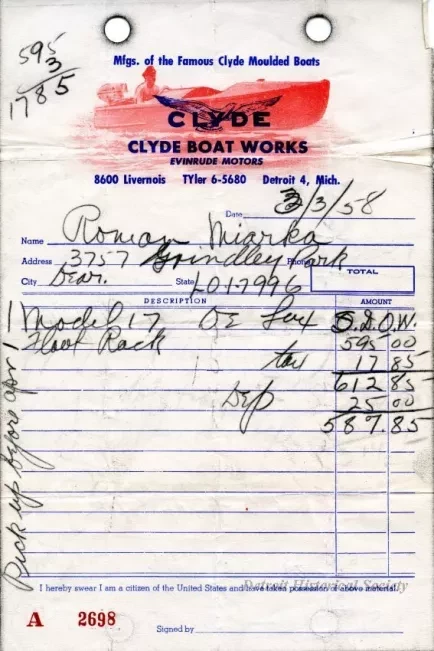 595
3
1785
Mfgs. of the Famous Clyde Moulded Boats
CLYDE
CLYDE BOAT WORKS
EVINRUDE MOTORS
8600 Livernois TYler 6-5680 Detroit 4, Mich.
Date 3/3/58
Name Roman Miarka
Address 3757 Grindley Park Phone
City Dear. State LO17996
TOTAL
DESCRIPTION AMOUNT
1 Model 17 De Lux
595 00
1 Float Rack
tax 17 85
612 85
Dep 25 00
587.85
Pick up before Apr 1
I hereby swear I am a citizen of the United States and have taken possession of above material.
Detroit Historical Society
A 2698
Signed by